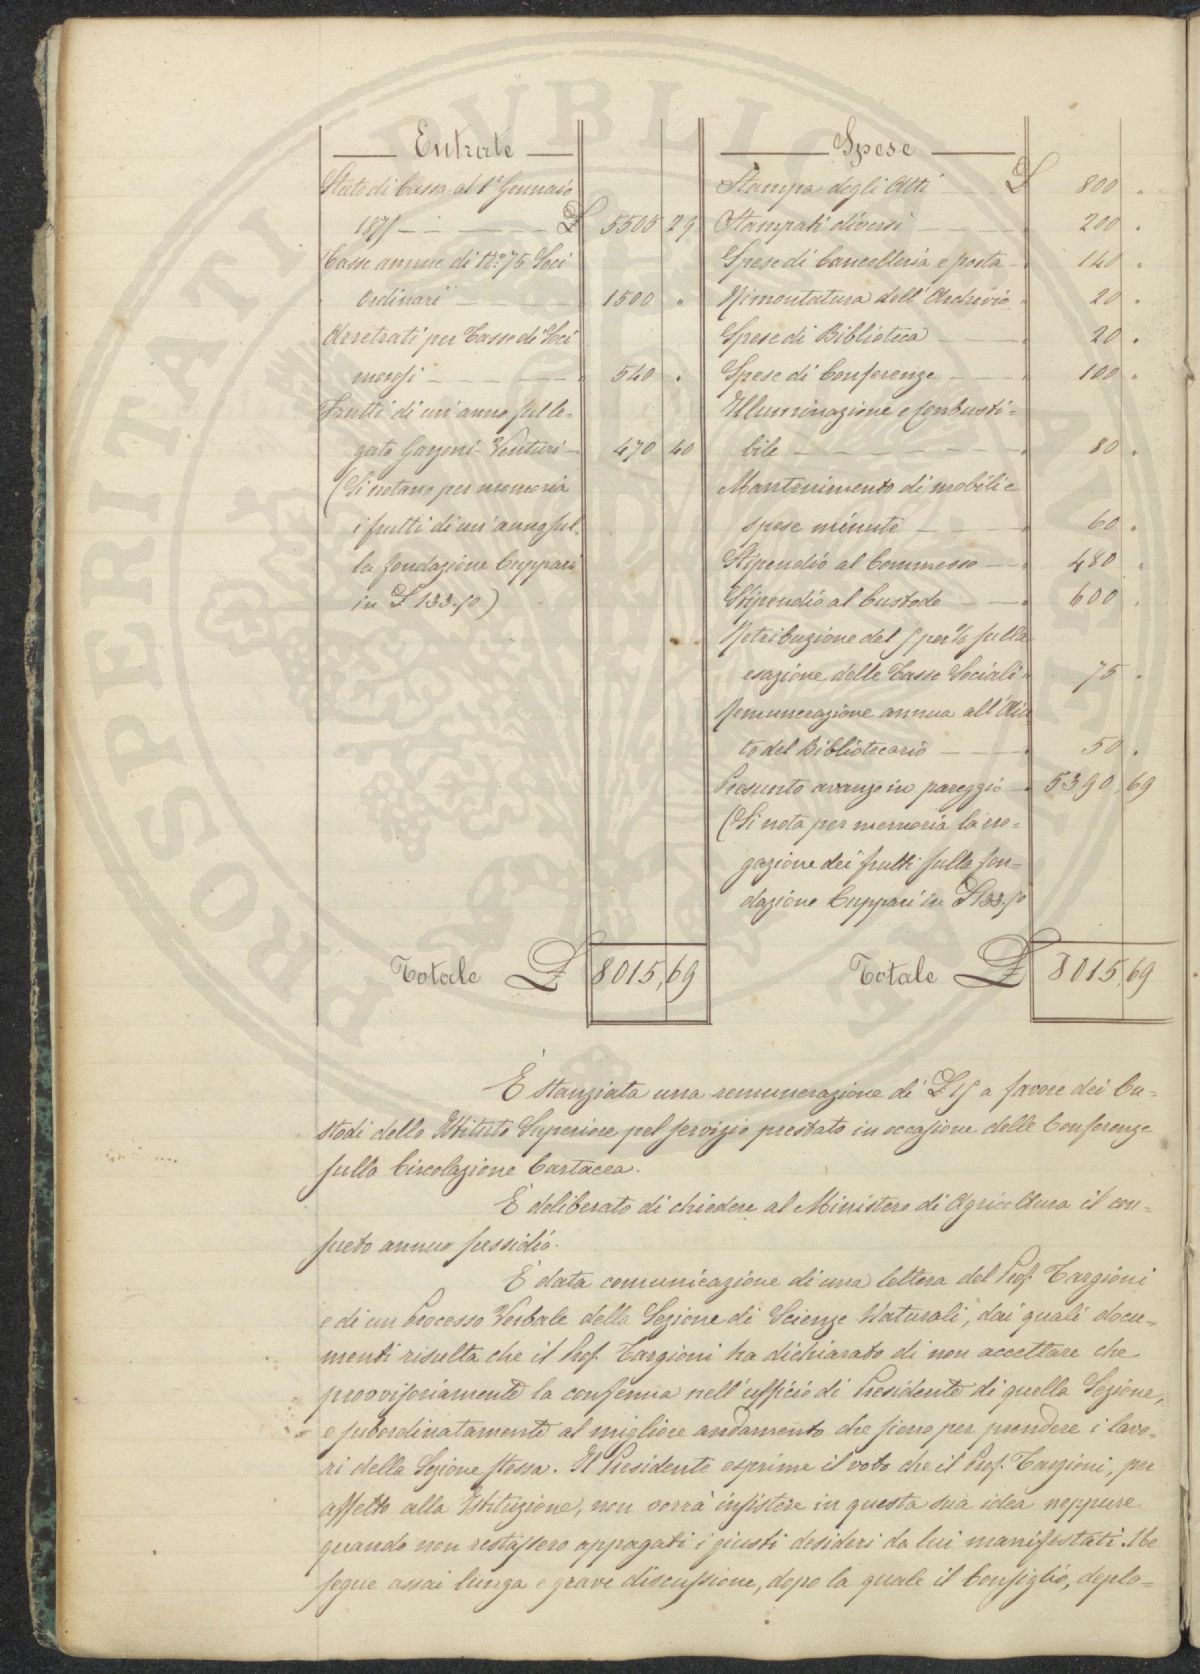 Entrate
Stato di Cassa al 1° Gennaio
1875 — £ 5505 29
Tasse annue di N.° 75 Soci
Ordinari — " 1500 "
Arretrati per Tasse di Soci
morosi — " 540 "
Frutti di un'anno sul le-
gato Garzoni-Venturi — 470 40
(Si notano per memoria
i frutti di un'anno sul-
la fondazione Cuppari
in £ 133.50)
Totale £ 8015,69
Spese
Stampa degli Atti — £ 800 "
Stampati diversi — " 200 "
Spese di Cancelleria e posta — " 140 "
Rimontatura dell'Archivio " 20 "
Spese di Biblioteca — " 20 "
Spese di Conferenze — " 100 "
Illuminazione e combusti-
bile — " 80 "
Mantenimento di mobili e
spese minute — " 60 "
Stipendio al Commesso — " 480 "
Stipendio al Custode — " 600 "
Retribuzione del 5 per % sulla
esazione delle Tasse Sociali " 75 "
Remunerazione annua all'Aiu
to del Bibliotecario — " 50 "
Presunto avanzo in pareggio — " 5390,69
(Si nota per memoria la ero-
gazione dei frutti sulla fon-
dazione Cuppari in £ 133.50
Totale £ 8015,69
È stanziata una remunerazione di £ 15 a favore dei Cu-
stodi dello Istituto Superiore pel servizio prestato in occasione delle Conferenze
sulla Circolazione Cartacea.
È deliberato di chiedere al Ministero di Agricoltura il con-
sueto annuo sussidio.
È data comunicazione di una lettera del Prof. Targioni
e di un Processo Verbale della Sezione di Scienze Naturali, dai quali docu-
menti risulta che il Prof. Targioni ha dichiarato di non accettare che
provvisoriamente la conferma nell'ufficio di Presidente di quella Sezione,
e subordinatamente al migliore andamento che sieno per prendere i lavo-
ri della Sezione stessa. Il Presidente esprime il voto che il Prof. Targioni, per
affetto alla Istituzione, non vorrà insistere in questa sua idea neppure
quando non restassero appagati i giusti desideri da lui manifestati. Ne
segue assai lunga e grave discussione, dopo la quale il Consiglio, deplo-
PROSPERITATI PVBLICAE AVGENDAE